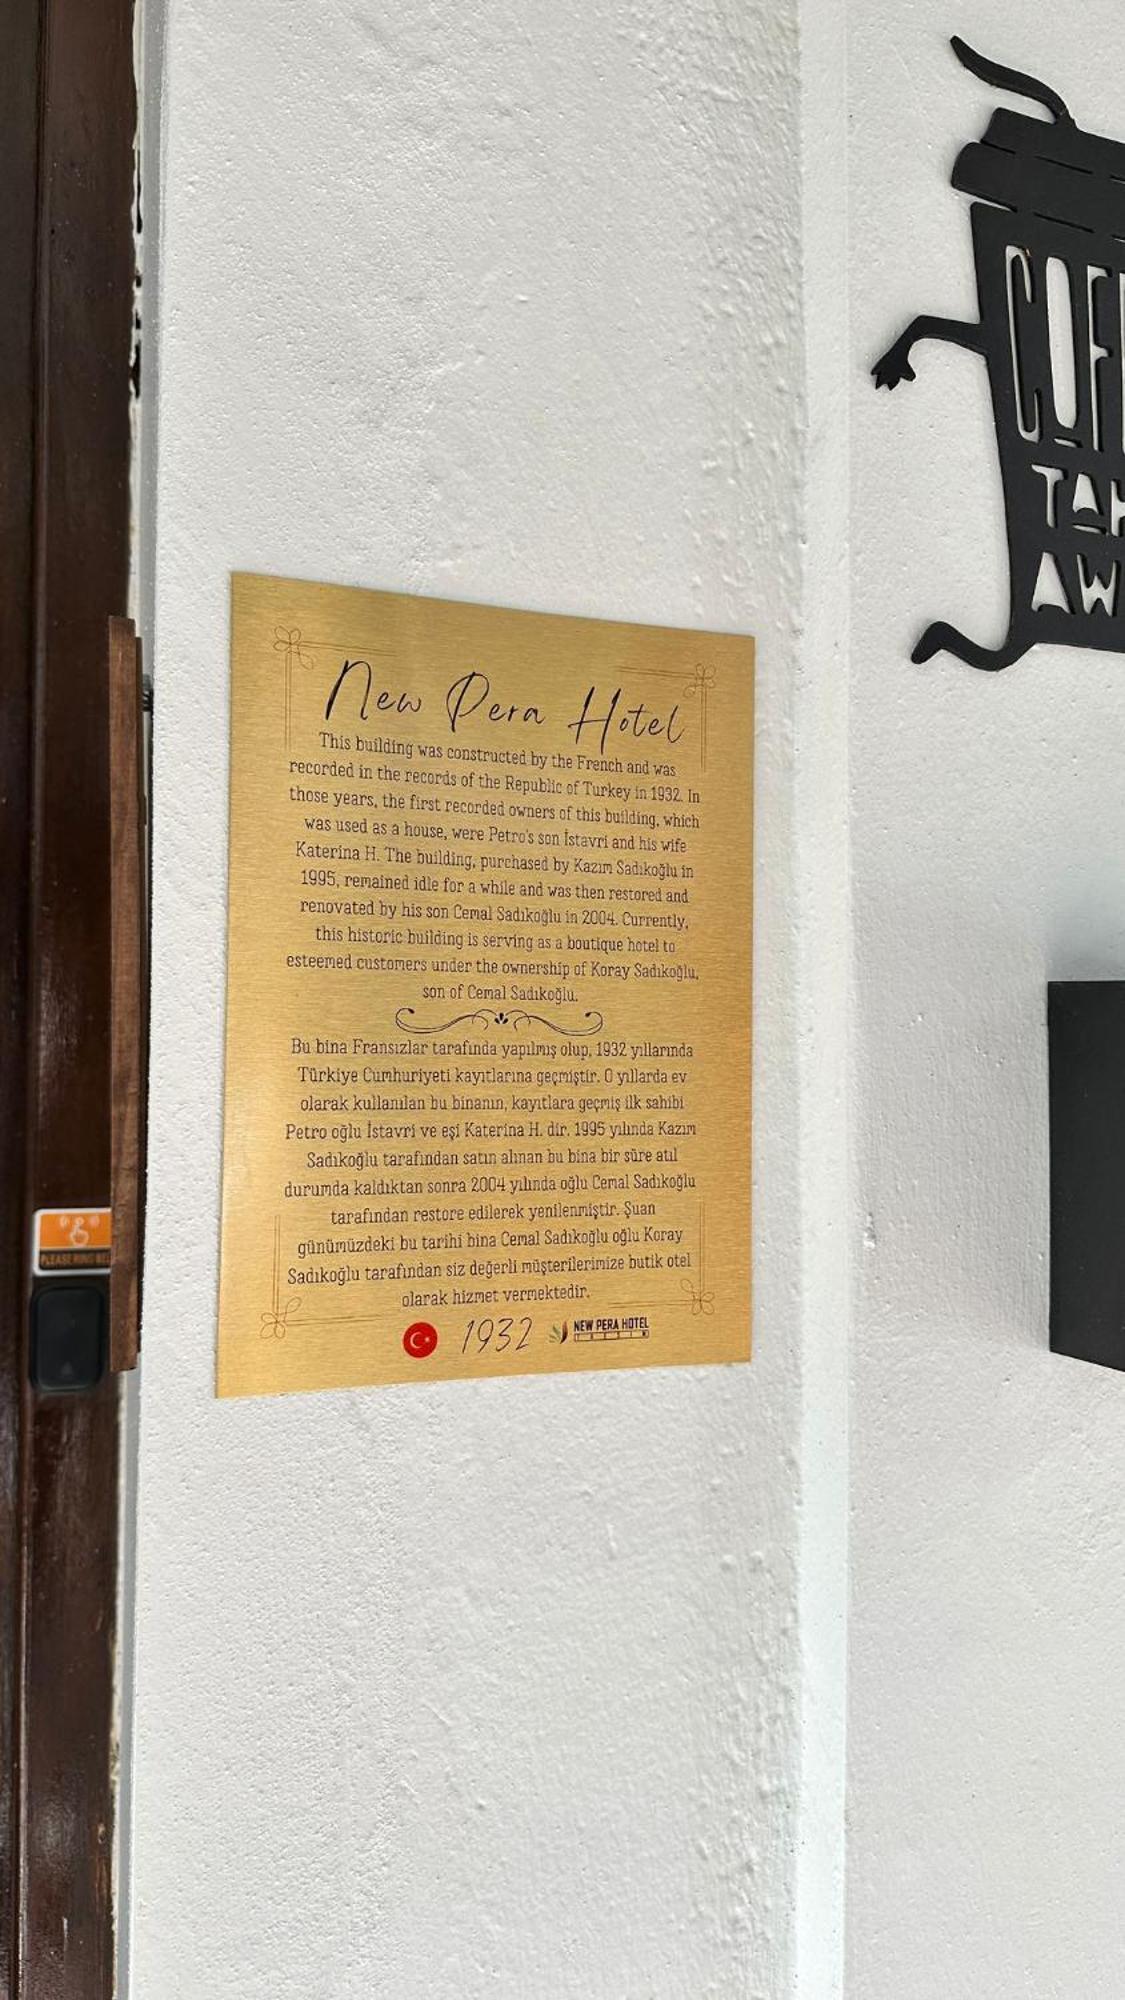 New Pera Hotel
This building was constructed by the French and was
recorded in the records of the Republic of Turkey in 1932. In
those years, the first recorded owners of this building, which
was used as a house, were Petro's son İstavri and his wife
Katerina H. The building, purchased by Kazım Sadıkoğlu in
1995, remained idle for a while and was then restored and
renovated by his son Cemal Sadıkoğlu in 2004. Currently,
this historic building is serving as a boutique hotel to
esteemed customers under the ownership of Koray Sadıkoğlu,
son of Cemal Sadıkoğlu.
Bu bina Fransızlar tarafında yapılmış olup, 1932 yıllarında
Türkiye Cumhuriyeti kayıtlarına geçmiştir. O yıllarda ev
olarak kullanılan bu binanın, kayıtlara geçmiş ilk sahibi
Petro oğlu İstavri ve eşi Katerina H. dir. 1995 yılında Kazım
Sadıkoğlu tarafından satın alınan bu bina bir süre atıl
durumda kaldıktan sonra 2004 yılında oğlu Cemal Sadıkoğlu
tarafından restore edilerek yenilenmiştir. Şuan
günümüzdeki bu tarihi bina Cemal Sadıkoğlu oğlu Koray
Sadıkoğlu tarafından siz değerli müşterilerimize butik otel
olarak hizmet vermektedir.
1932 NEW PERA HOTEL
PLEASE RING
COF
TAK
AW